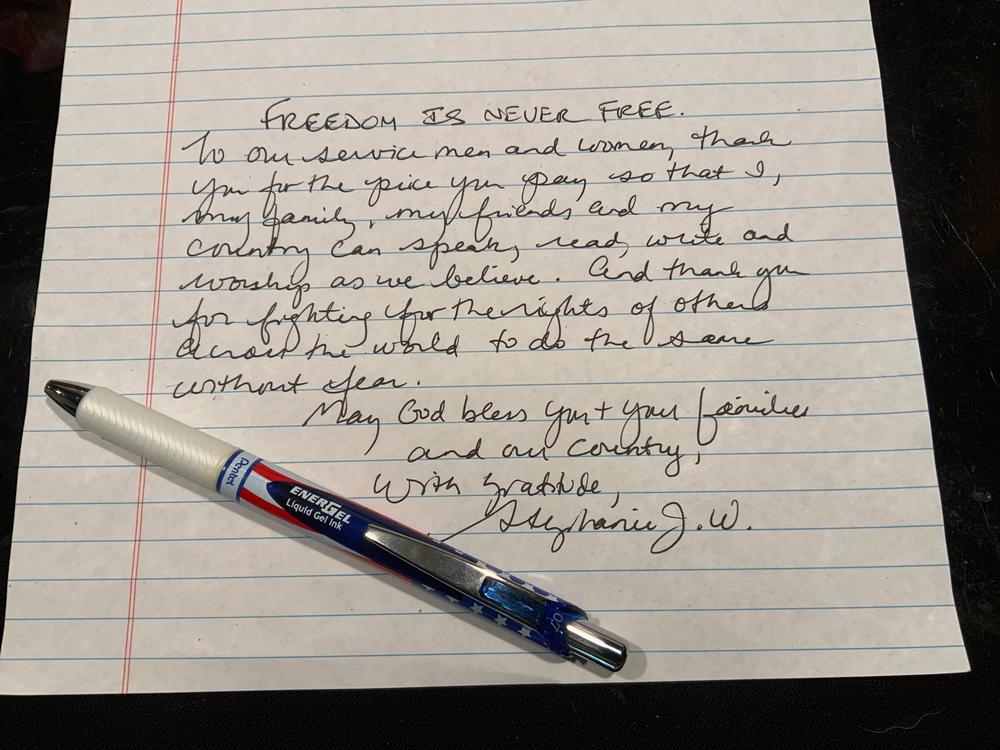 FREEDOM IS NEVER FREE.
To our service men and women, thank
you for the price you pay so that I,
my family, my friends and my
country can speak, read, write and
worship as we believe. And thank you
for fighting for the rights of others
across the world to do the same
without fear.
May God bless you + your families
and our country,
With gratitude,
Stephanie J. W.
Pentel
ENERGEL
Liquid Gel Ink
0.7